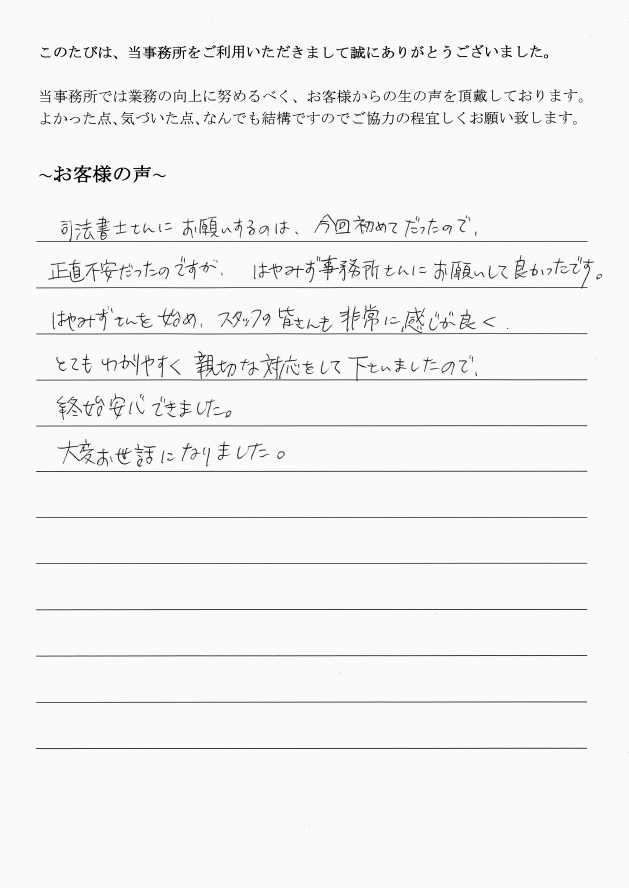 このたびは、当事務所をご利用いただきまして誠にありがとうございました。
当事務所では業務の向上に努めるべく、お客様からの生の声を頂戴しております。
よかった点、気づいた点、なんでも結構ですのでご協力の程宜しくお願い致します。
~お客様の声~
司法書士さんにお願いするのは、今回初めてだったので、
正直不安だったのですが、はやみず事務所さんにお願いして良かったです。
はやみずさんを始め、スタッフの皆さんも非常に感じが良く、
とてもわかりやすく親切な対応をして下さいましたので、
終始安心できました。
大変お世話になりました。